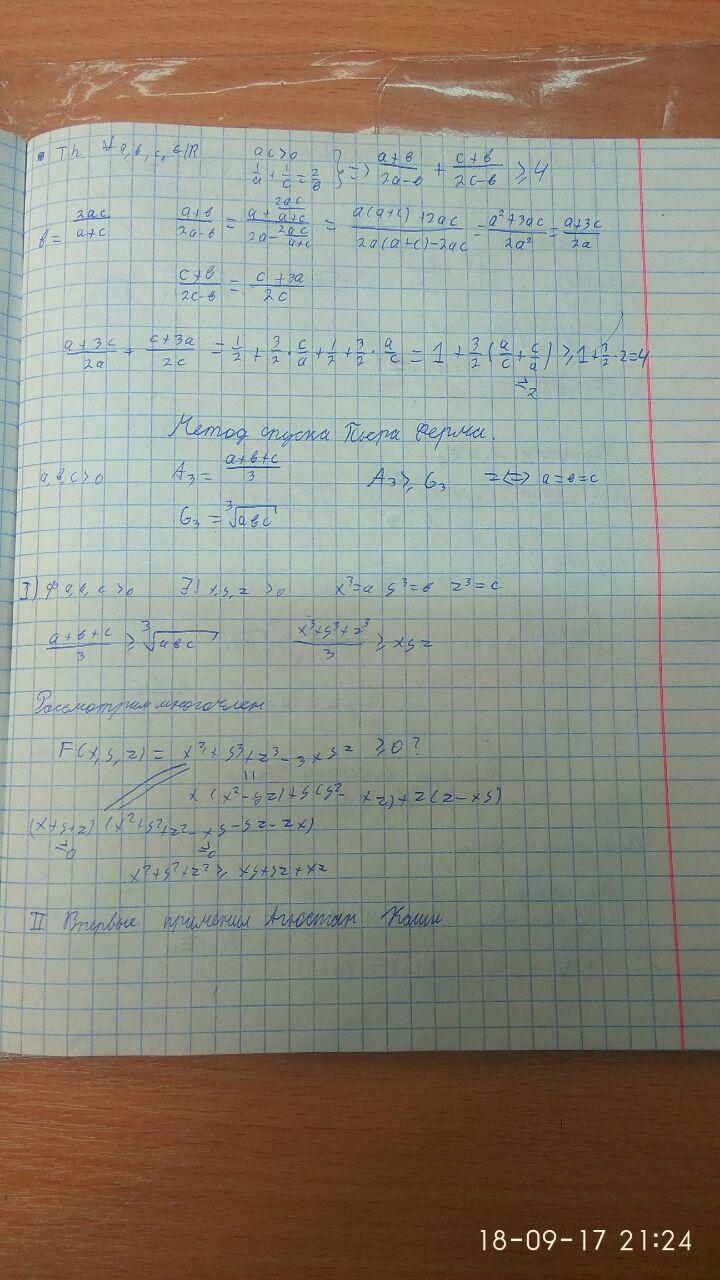 Th ∀ a, в, c, ∈ ℝ ac>0 1/a + 1/c = 2/в } => (a+в)/(2a-в) + (c+в)/(2c-в) ≥ 4
в = 2ac/(a+c) (a+в)/(2a-в) = (a + 2ac/(a+c))/(2a - 2ac/(a+c)) = (a(a+c)+2ac)/(2a(a+c)-2ac) = (a²+3ac)/(2a²) = (a+3c)/(2a)
(c+в)/(2c-в) = (c+3a)/(2c)
(a+3c)/(2a) + (c+3a)/(2c) = 1/2 + 3/2 · c/a + 1/2 + 3/2 · a/c = 1 + 3/2 (a/c + c/a) ≥ 1 + 3/2 · 2 = 4
≥2
Метод спуска Пьера Ферма.
a, в, c>0 A₃ = (a+в+c)/3 A₃ ≥ G₃ = <=> a=в=c
G₃ = ∛(aвc)
I) ∀ a, в, c >0 ∃! x, y, z >0 x³=a y³=в z³=c
(a+в+c)/3 ≥ ∛(aвc) (x³+y³+z³)/3 ≥ xyz
Рассмотрим многочлен
F(x, y, z) = x³+y³+z³-3xyz ≥0?
=
x(x²-yz)+y(y²-xz)+z(z-xy)
(x+y+z)(x²+y²+z²-xy-yz-zx)
≥0 ≥0
x²+y²+z² ≥ xy+yz+xz
II Впервые применил Агюстан Коши
18-09-17 21:24